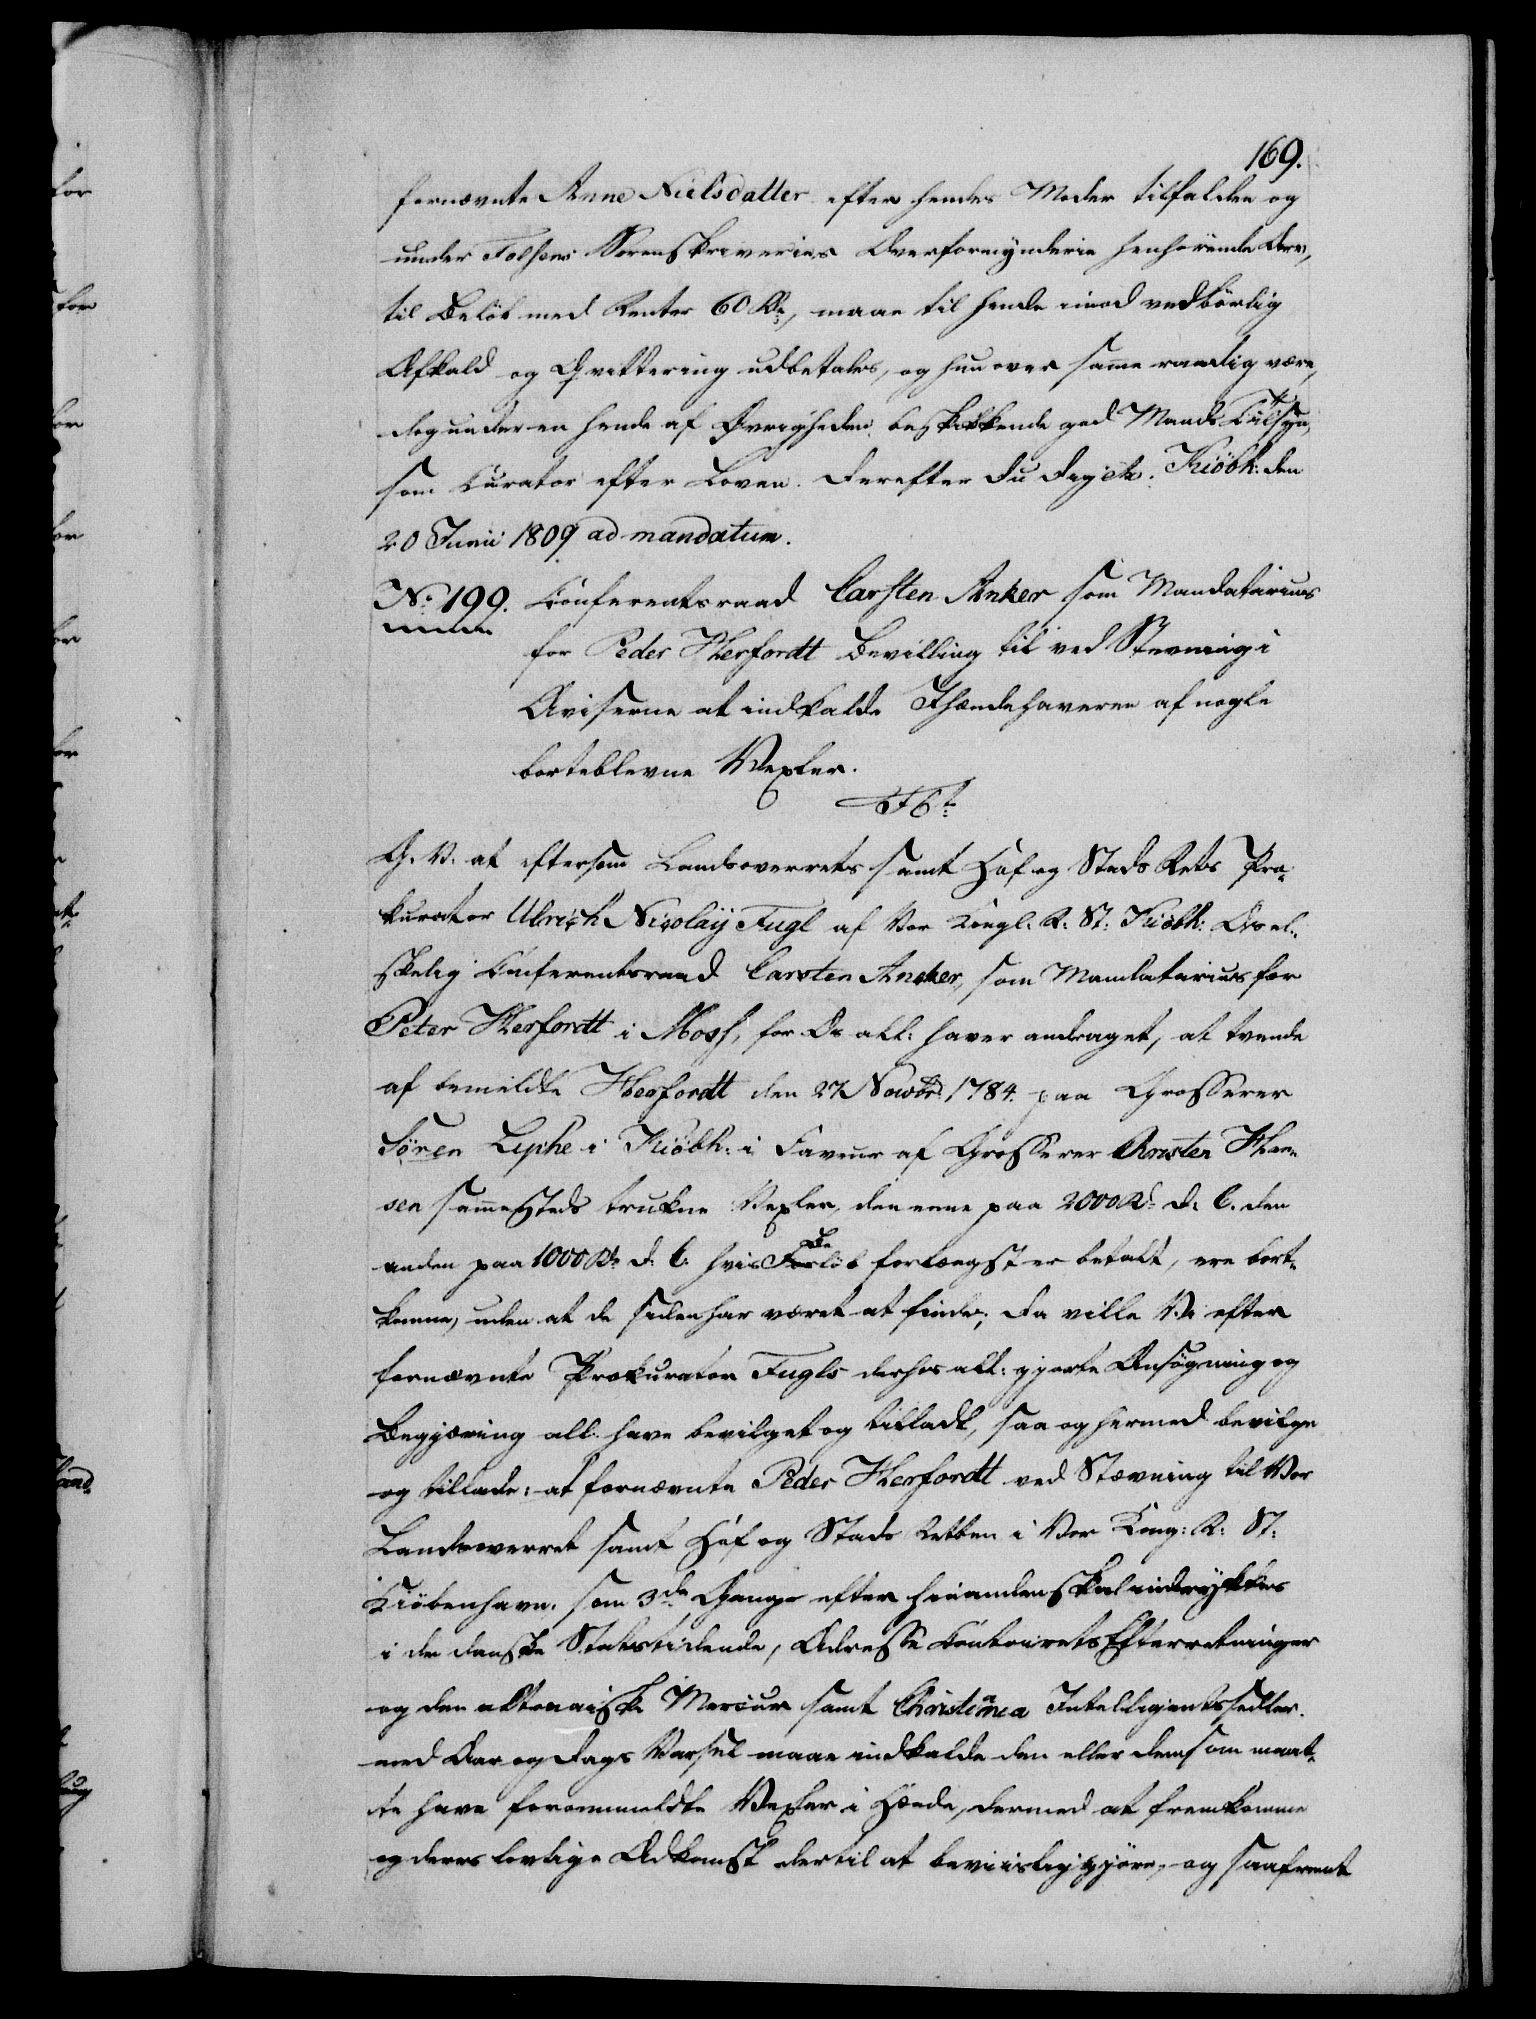 169.
fornævnte Anne Nielsdatter efter hendes Moder tilfalden og
under Follous Sorenskriveries Overformynderie henhørende Arv,
til Beløb med Renter 60 Rd:, maae til hende imod vedbørlig
Afkald og Qvittering udbetales, og hun over samme raadig være,
dog under en hende af Øvrigheden beskikkende god Mands Tilsyn,
som Curator efter Loven. Derefter du dig etc. Kiöbh: den
20 Junii 1809 ad mandatum.
No 199. Conferentsraad Carsten Anker som Mandatarius
for Peder Herfordt Bevilling til ved Stevning i
Aviserne at indkalde Ihændehaveren af nogle
bortblevne Vexler.
F 6t:
G. V. at eftersom Landsoverrets samt Hof og Stads Rets Pro-
kurator Ulrich Nicolaij Fugl af Vor Kongl: R: St: Kiöbh: Os el-
skelig Conferentsraad Carsten Ancker, som Mandatarius for
Peter Herfordt i Moss, for Os all: haver andraget, at tvende
af bemeldte Herfordt den 27 Novbr: 1784. paa Grosserer
Sören Lyche i Kiöbh: i Faveur af Grosserer Christen Han-
sen sammesteds trukne Vexler, den eene paa 2000 Rd: d. C. den
anden paa 1000 Rd: d. C. hvis Beløb forlængst er betalt, ere bort-
komne, uden at de siden har været at finde; da ville Vi efter
fornævnte Prokurator Fugls derhos all: gjorte Ansøgning og
Begjæring all. have bevilget og tilladt, saa og hermed bevilge
og tillade: at fornævnte Peder Herfordt ved Stævning til Vor
Landsoverret samt Hof og Stads Retten i Vor Kong: R: St:
Kiöbenhavn. som 3de Gange efter hinanden skal indrykkes
i den danske Statstidende, Adresse Contoirets Efterretninger
og den altonaiske Mercur samt Christiania Intelligentssedler.
med Aar og Dags Varsel maae indkalde den eller dem som maat-
te have forommeldte Vexler i Hænde, dermed at fremkomme
og deres lovlige Adkomst dertil at beviisliggjøre, og saafremt